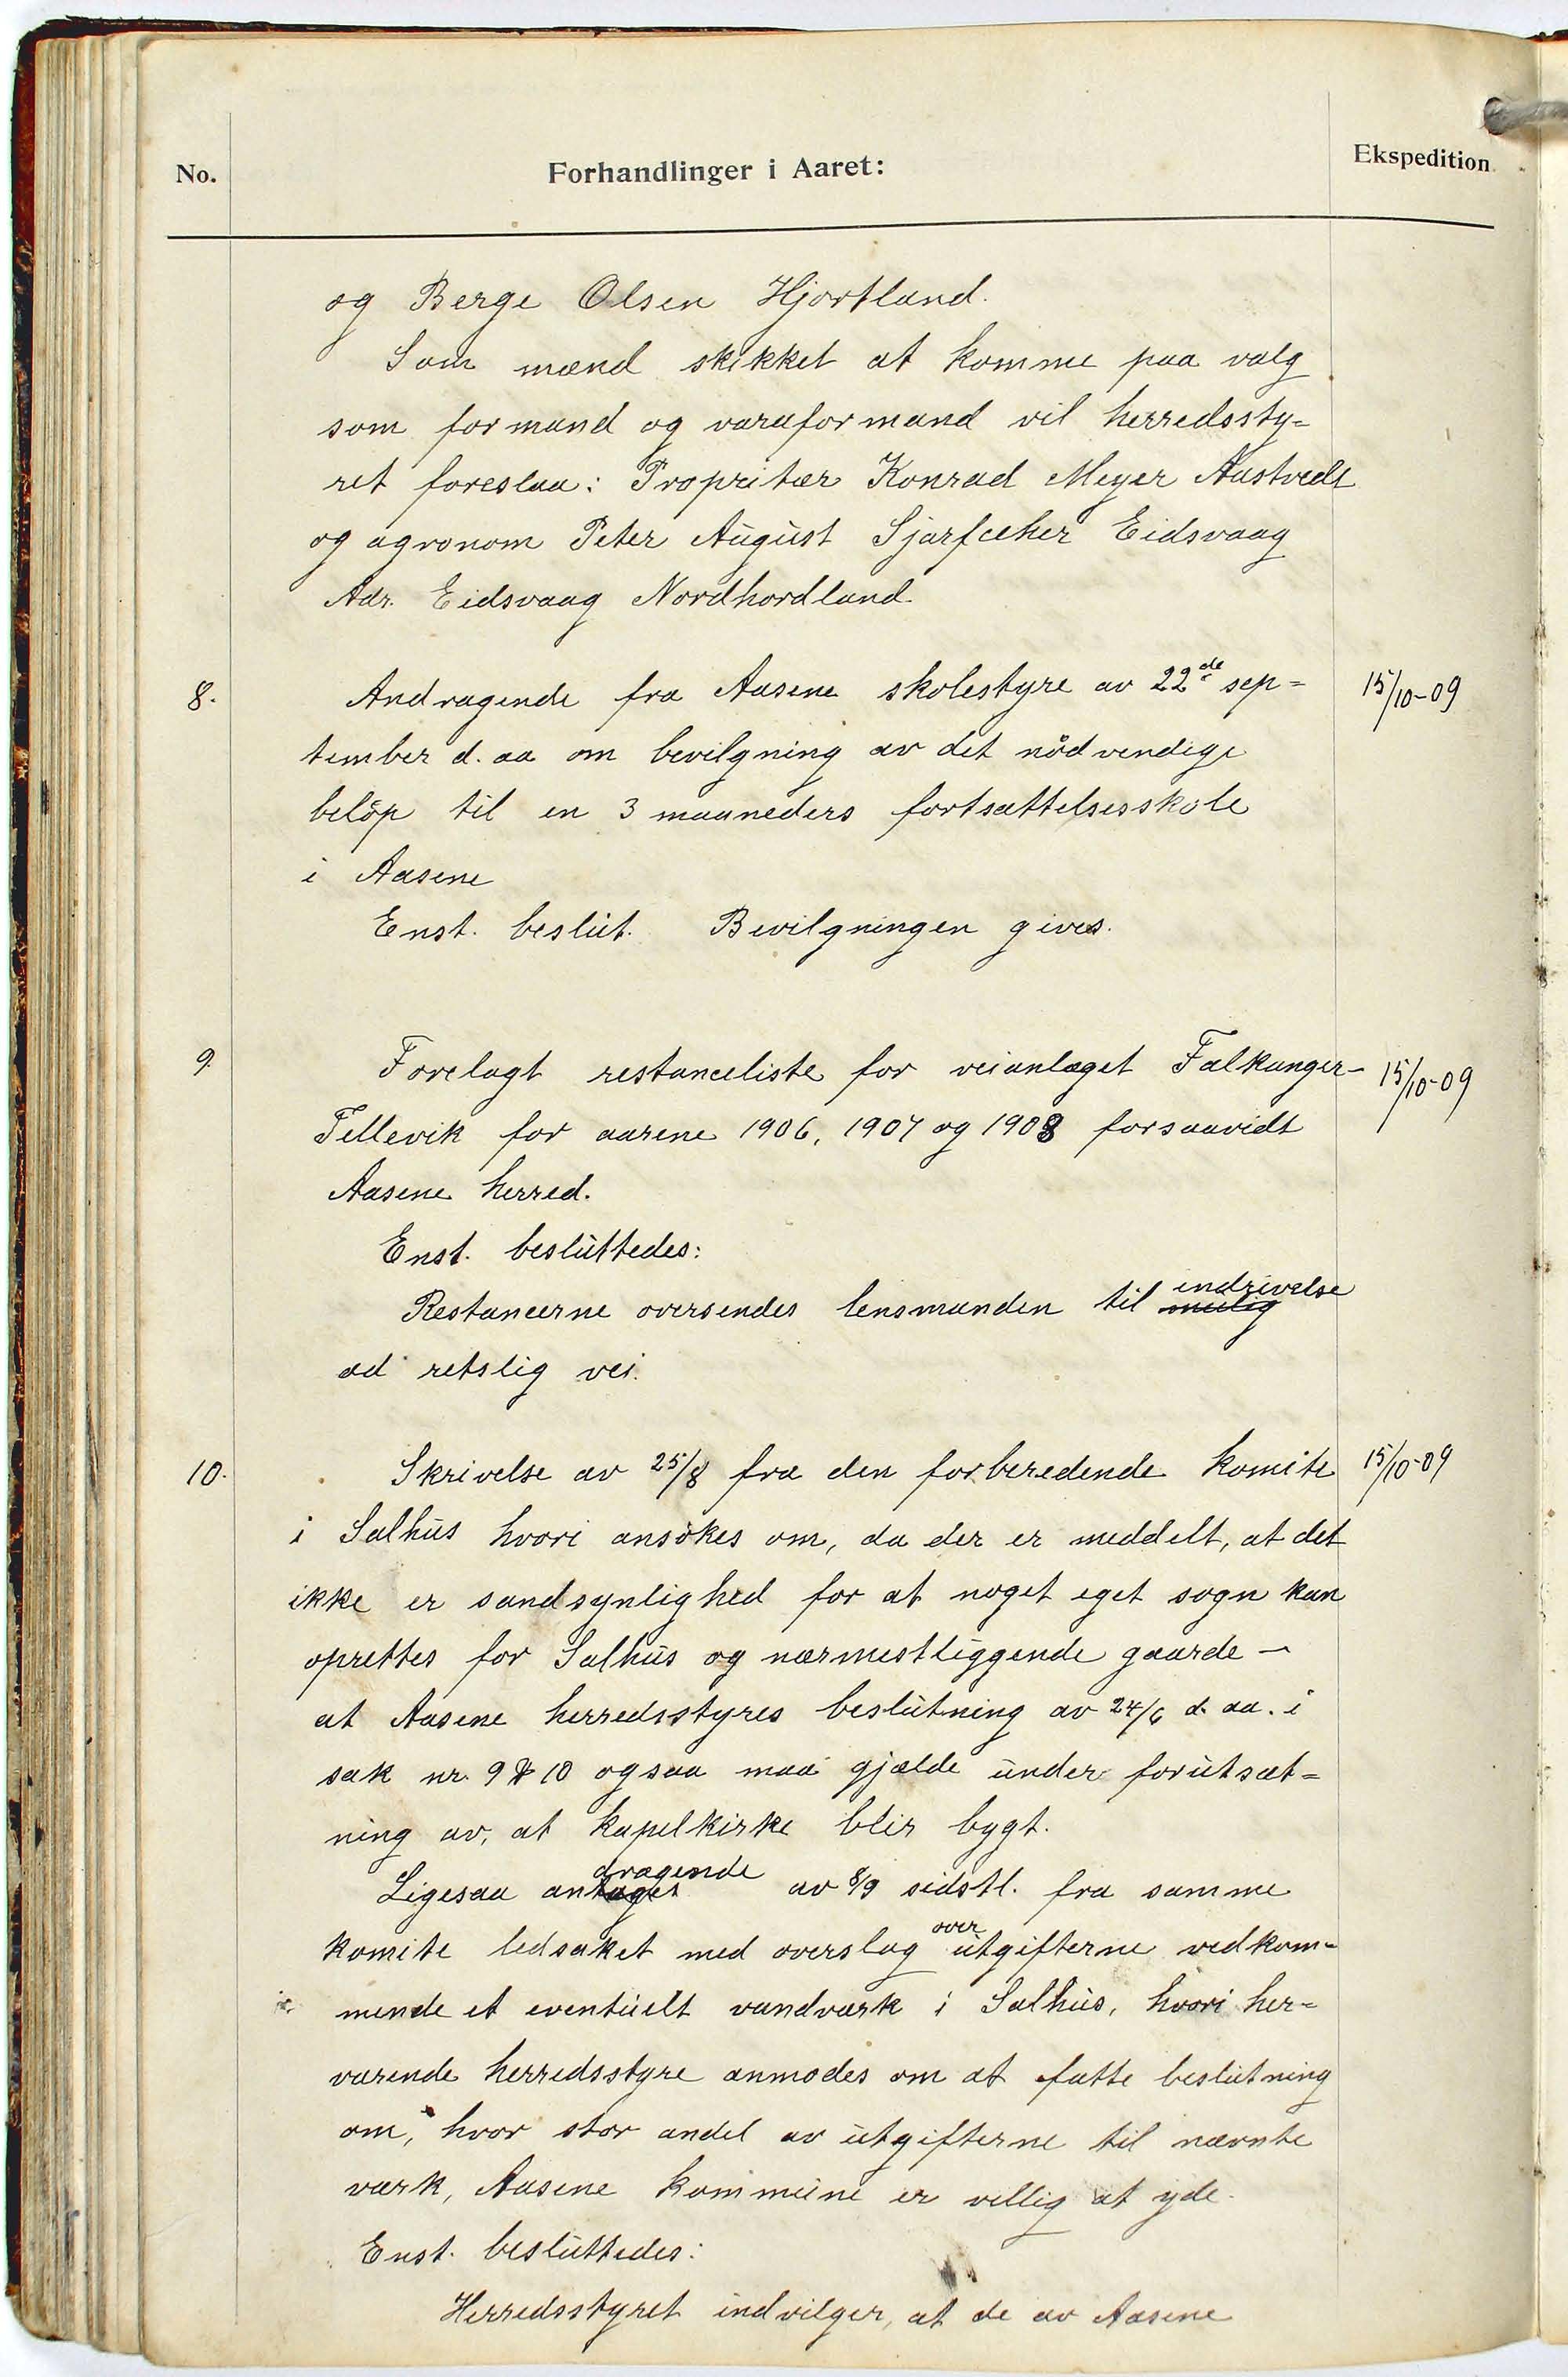 No.
Forhandlinger i Aaret:
Ekspedition
og Berge Olsen Hjortland.
Som mænd skikket at komme paa valg
som formand og varaformand vil herredssty=
ret foreslaa: Propritær Konrad Meyer Aastvedt
og agronom Peter August Eidsvaag
Adr. Eidsvaag Nordhordland
8. Andragende fra Aasene skolestyre av 22de sep= 15/10-09
tember d. aa om bevilgning av det nödvendige
belöp til en 3 maaneders fortsættelsesskole
i Aasene
Enst. beslut. Bevilgningen gives.
9. Forelagt restanceliste for veianlæget Falkanger- 15/10-09
Tellevik for aarene 1906, 1907 og 1908 forsaavidt
Aasene herred.
Enst. besluttedes:
Restancerne oversendes lensmanden til indrivelse
ad retslig vei.
10. Skrivelse av 25/8 fra den forberedende komite 15/10-09
i Salhus hvori ansökes om, da der er meddelt, at det
ikke er sandsynlighed for at noget eget sogn kan
oprettes for Salhus og nærmestliggende gaarde -
at Aasene herredsstyres beslutning av 24/6 d. aa. i
sak nr. 9 & 10 ogsaa maa gjælde under forutsæt=
ning av, at kapelkirke blir bygt.
Ligesaa andragende av 8/9 sidstl. fra samme
komite ledsaket med overslag over utgifterne vedkom=
mende et eventuelt vandværk i Salhus, hvori her=
værende herredsstyre anmodes om at fatte beslutning
om, hvor stor andel av utgifterne til nævnte
værk, Aasene kommune er villig at yde.
Enst. besluttedes:
Herredsstyret indvilger, at de av Aasene